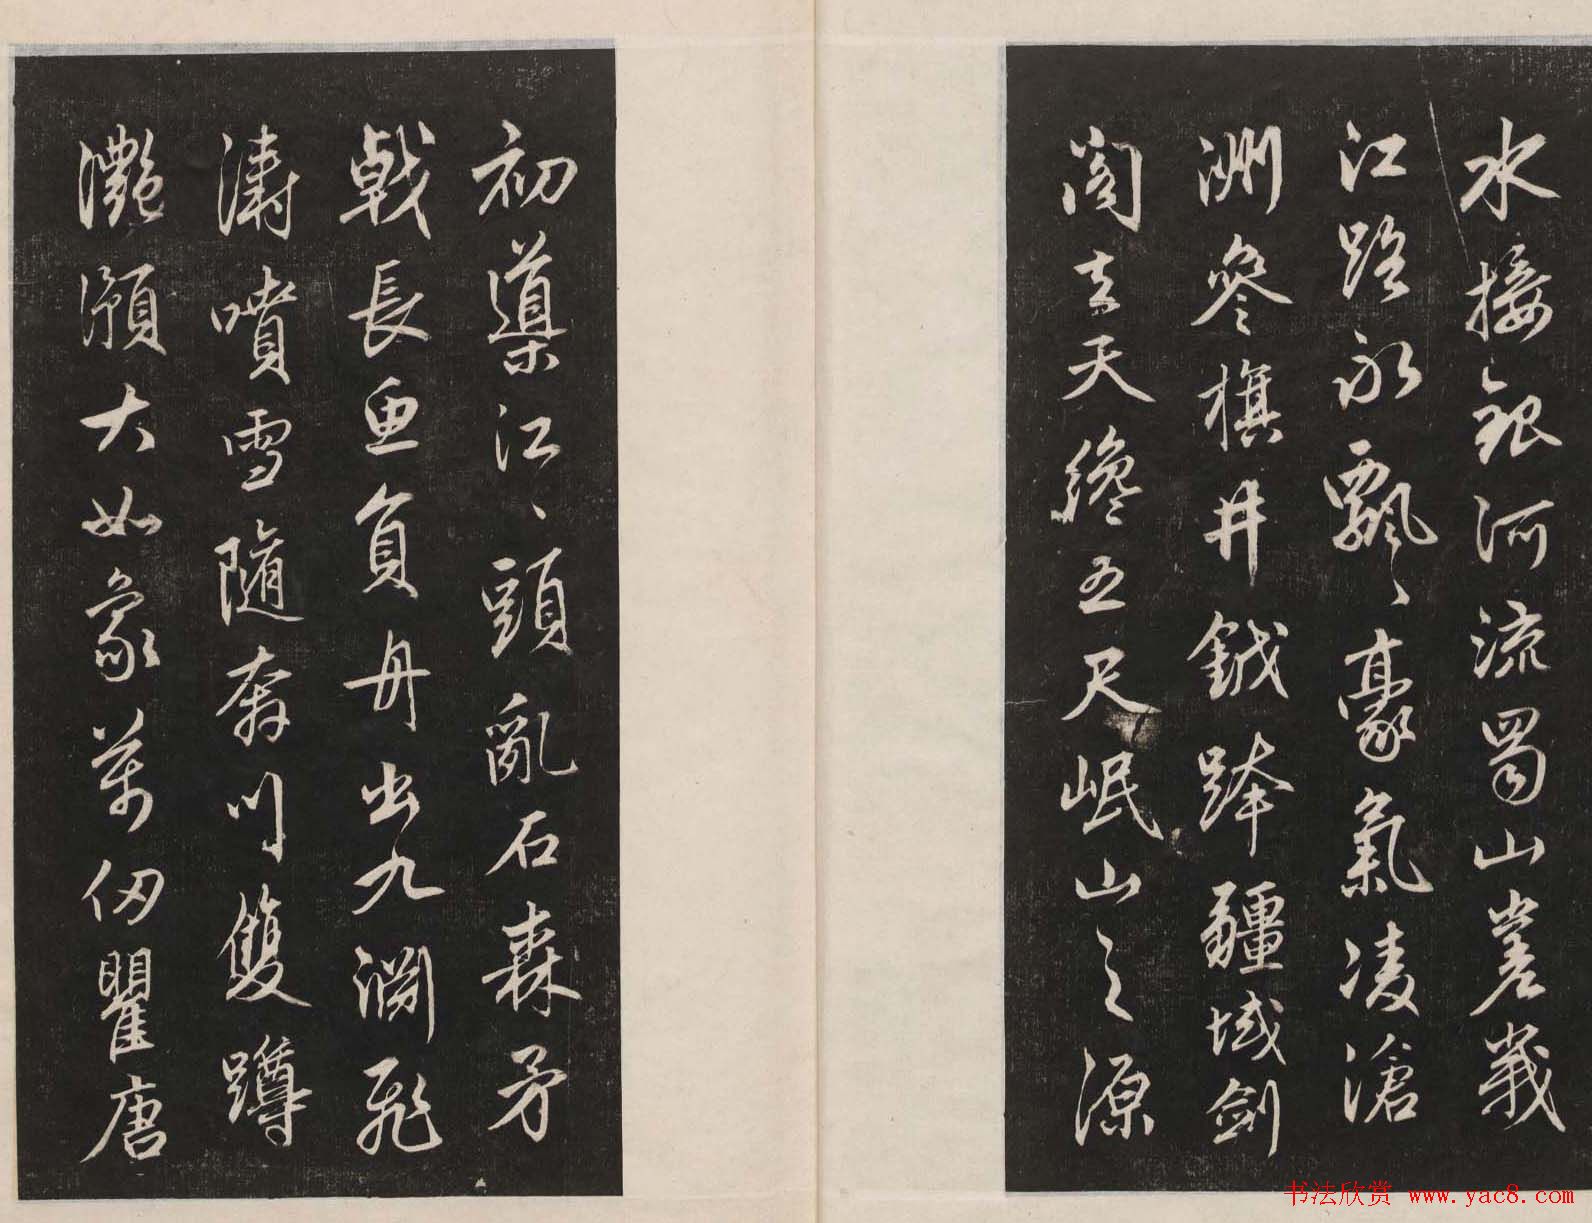 水接銀河流蜀山峩峩
江路永飄〻豪氣凌滄
洲參旗井鉞跨疆域劍
閣去天纔五尺岷山之源
初導江〻頭亂石森矛
戟長魚負舟出九淵飛
濤噴雪隨奔川雙蹲
灩澦大如象萬仞瞿唐
书法欣赏 www.yac8.com